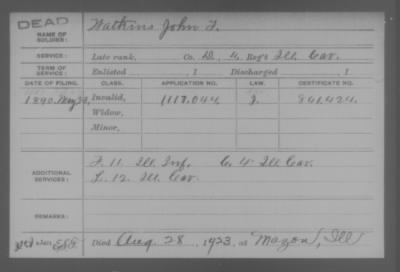 DEAD
NAME OF SOLDIER: Watkins John F.
SERVICE: Late rank, Co. D, 4 Reg't Ill. Cav.
TERM OF SERVICE: Enlisted , 1 Discharged , 1
DATE OF FILING. CLASS. APPLICATION NO. LAW. CERTIFICATE NO.
1890. May Invalid, 1117.044 J. 841.424.
Widow,
Minor,
ADDITIONAL SERVICES: F. 11 Ill. Inf. C. 4 Ill Cav.
L. 12 Ill. Cav.
REMARKS:
Died Aug. 28, 1923, at Mazon, Ill